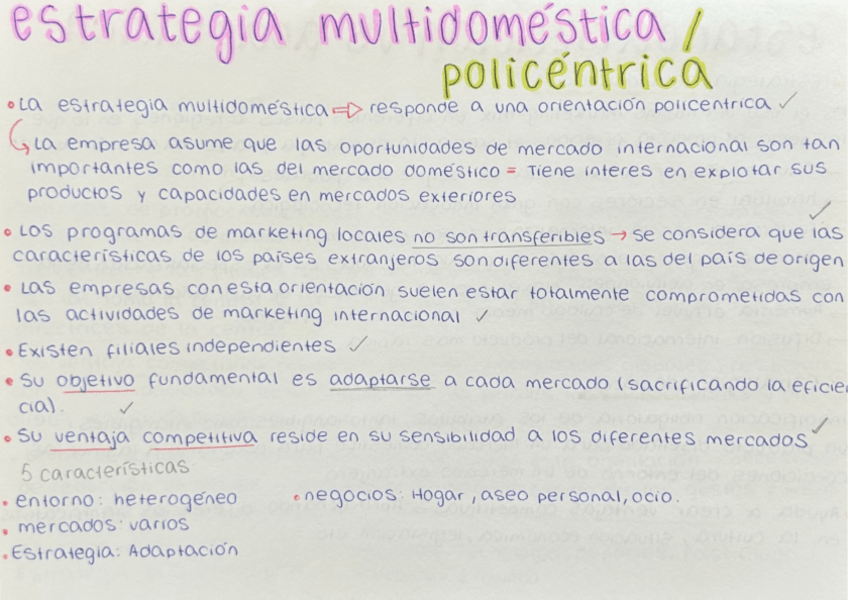 estrategia multidoméstica /
policéntrica
• La estrategia multidoméstica ⇨ responde a una orientación policentrica ✓
↳ La empresa asume que las oportunidades de mercado internacional son tan
importantes como las del mercado doméstico = Tiene interes en explotar sus
productos y capacidades en mercados exteriores ✓
• Los programas de marketing locales no son transferibles → se considera que las
características de los países extranjeros son diferentes a las del país de origen
• Las empresas con esta orientación suelen estar totalmente comprometidas con
las actividades de marketing internacional ✓
• Existen filiales independientes ✓
• Su objetivo fundamental es adaptarse a cada mercado (sacrificando la eficien
cia). ✓
• Su ventaja competitiva reside en su sensibilidad a los diferentes mercados ✓
5 características
• entorno: heterogéneo • negocios: Hogar, aseo personal, ocio.
• mercados: varios
• Estrategia: Adaptación